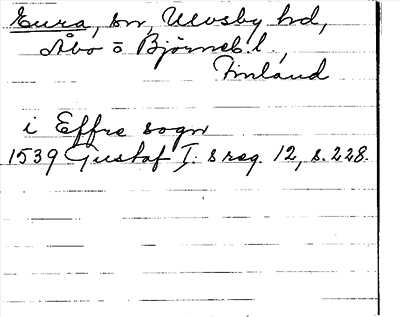 Eura, sn, Ulvsby hd,
Åbo o Björneb. l.,
Finland
i Effre sogn
1539 Gustaf I:s reg. 12, s. 228.